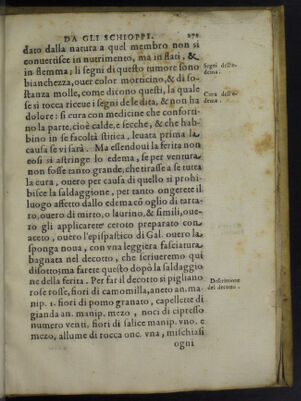 DA GLI SCHIOPPI. 278
dato dalla natura a quel membro non si
conuertisce in nutrimento, ma in flati, &
in flemma; li segni di questo tumore sono
Segni dell'e-
dema.
bianchezza, ouer color morticino, & di so-
stanza molle, come dicono questi, la quale
se si tocca riceue i segni de le dita, & non ha
Cura dell'e-
dema.
dolore: si cura con medicine che conforti-
no la parte, cioè calde, e secche, & che hab-
bino in se facoltà stitica, leuata prima la
causa se vi sarà. Ma essendoui la ferita non
così si astringe lo edema, se per ventura
non fosse tanto grande, che tirasse a se tutta
la cura, ouero per causa di quello si prohi-
bisce la saldaggione, per tanto ongerete il
luogo affetto dallo edema cõ oglio di tarta-
ro, ouero di mirto, o laurino, & simili, oue-
ro gli applicarete ceroto preparato con
aceto, ouero l'epispastico di Gal. ouero la
sponga noua, con vna leggiera fasciatura
bagnata nel decotto, che scriueremo qui
disotto; ma farete questo dopò la saldaggio
ne della ferita. Per far il decotto si pigliano
Descrittione
del decotto.
rose rosse, fiori di camomilla, aneto an. ma
nip. 1. fiori di pomo granato, capellette di
gianda an. manip. mezo, noci di cipresso
numero venti, fiori di salice manip. vno. e
mezo, allume di rocca onc. vna, mischiasi
ogni